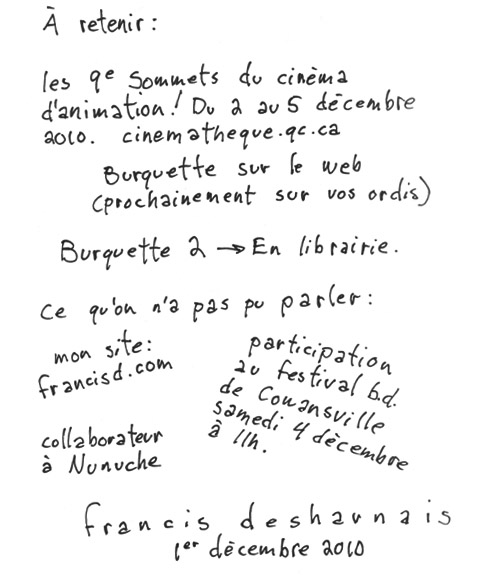 À retenir :
les 9e Sommets du cinéma
d'animation! Du 2 au 5 décembre
2010. cinematheque.qc.ca
Burquette sur le web
(prochainement sur vos ordis)
Burquette 2 → En librairie.
Ce qu'on n'a pas pu parler :
mon site :
francisd.com
participation
au festival b.d.
de Cowansville
samedi 4 décembre
à 11h.
collaborateur
à Nunuche
francis desharnais
1er décembre 2010